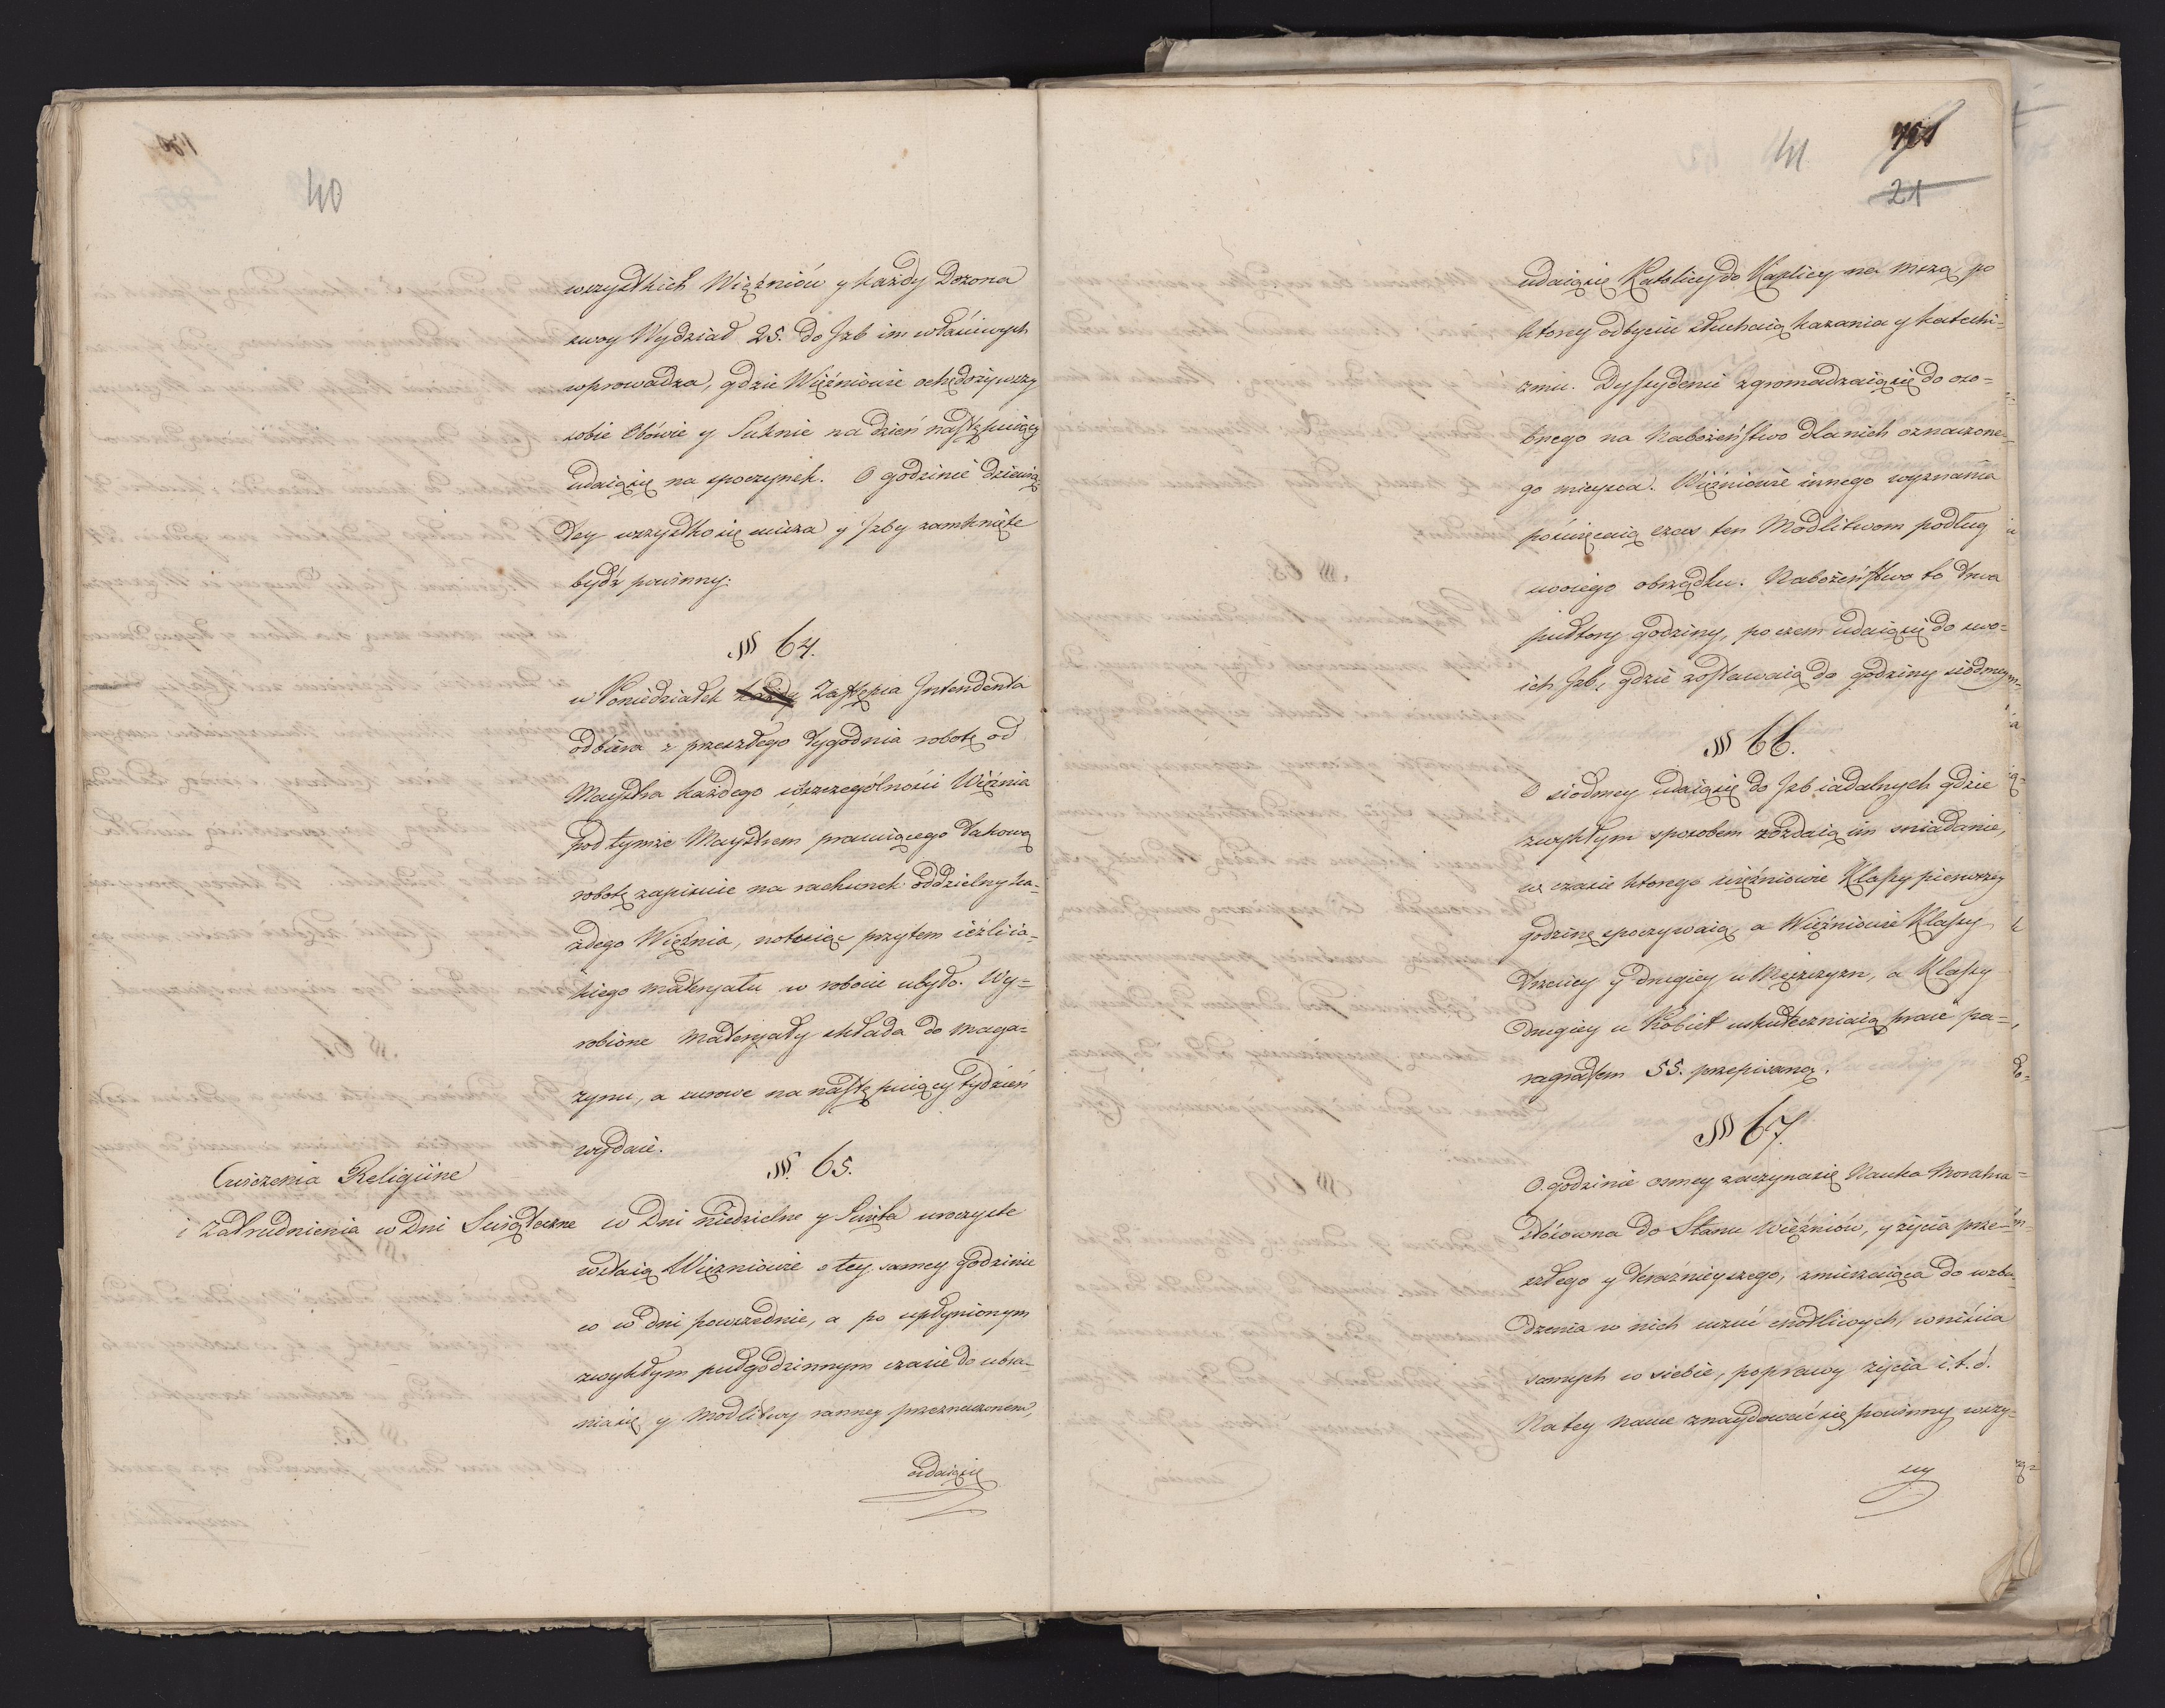 40
wszystkich Więźniów y każdy Dozorca
swoy Wydział 25. do Izb im właściwych
wprowadza, gdzie Więźniowie ochędożywszy
sobie Obówie y Suknie na dzień następuiący
udaiąsię na spoczynek. O godzinie dziewią
tey wszystko się ucisza y Izby zamknięte
bydź powinny.
§§ 64.
w Poniedziałek każdy Zastępca Intendenta
odbiera z przeszłego tygodnia robotę od
Maystra każdego wszczególności Więźnia
pod tymże Maystrem pracuiącego takową
robotę zapisuie na rachunek oddzielny ka-
żdego Więźnia, notuiąc przytem ieźli ia-
kiego materyału w robocie ubyło. Wy=
robione materyały składa do maga-
zynu, a surowe na następuiący tydzień
wydaie.
§§. 65.
Cwiczenia Religiine
i Zatrudnienia w Dni Swiąteczne
w Dni niedzielne y Swięta uroczyste
wstaią Więzniowie o tey samey godzinie
co w dni powszednie, a po upłynionym
zwykłym pułgodzinnym czasie do ubra-
niasię y modlitwy ranney przeznaczonem,
udaiąsię
41
21
udaiąsię Katolicy do Kaplicy na mszą, po
ktorey odbyciu słuchaią kazania y katechi=
zmu. Dyssydenci zgromadzaiąsię do oso=
bnego na Nabożeństwo dla nich oznaczone-
go mieysca. Więźniowie innego wyznania
poświęcaią czas ten Modlitwom podług
swoiego obrządku. Nabożeństwo to trwa
pułtory godziny, poczem udaiąsię do swo=
ich Izb, gdzie zostawaią do godziny siódmey.
§§ 66.
O siodmey udaiąsię do Izb iadalnych gdzie
zwykłym sposobem rozdaią im sniadanie,
w czasie ktorego więźniowie Klassy pierwszey
godzinę spoczywaią, a Więźniowie Klassy
trzeciey y drugiey u Męzczyzn, a Klassy
drugiey u Kobiet uskuteczniaią prace pa=
ragrafem 55. przepisane.
§§ 67.
O. godzinie osmey zaczynasię Nauka Moralna
stósowna do Stanu Więźniów, y życia prze-
szłego y teraźnieyszego, zmierzaiąca do wzbu
dzenia w nich uczuć cnotliwych, wniścia
samych w siebie, poprawy życia i. t. d.
Na tey nauce znaydować się powinny wszy-
scy